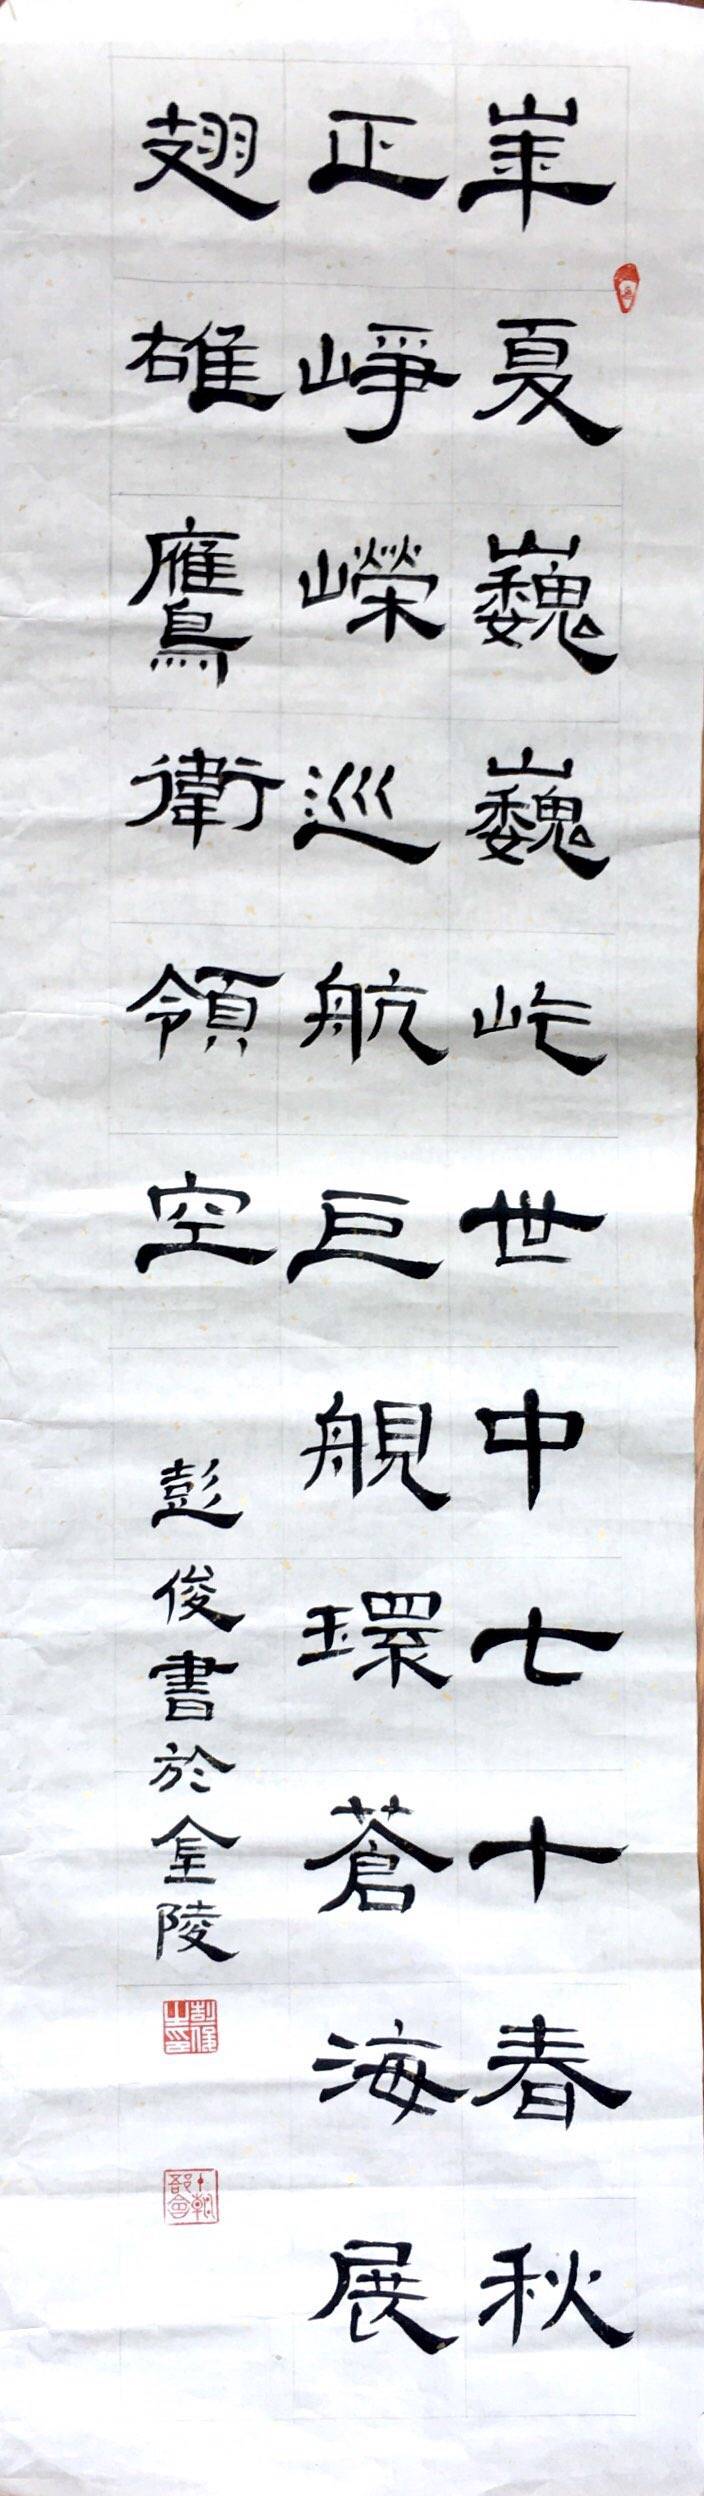 崋夏巍巍屹世中七十春秋
正崢嶸巡航巨艦環蒼海展
翅雄鷹衛領空
彭俊書於金陵